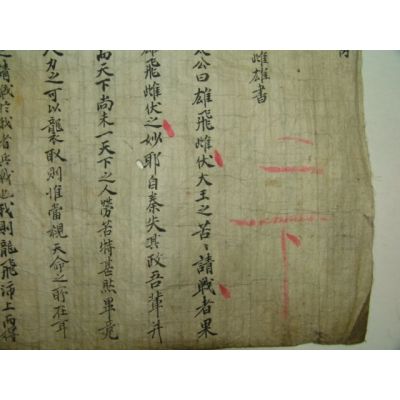 雌雄書
公曰雄飛雌伏大王之苦〻請戰者果
雄飛雌伏之妙耶自秦失其政吾輩并
而天下尚未一天下之人勞苦特甚然畢竟
人力之可以襲取則惟當視天命之所在耳
請戰於我者與戰也我則龍飛沛上而得
二下